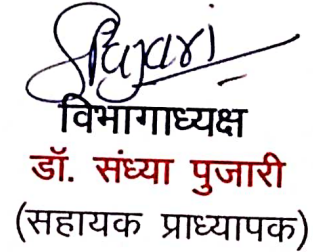 SPujari
विभागाध्यक्ष
डॉ. संध्या पुजारी
(सहायक प्राध्यापक)